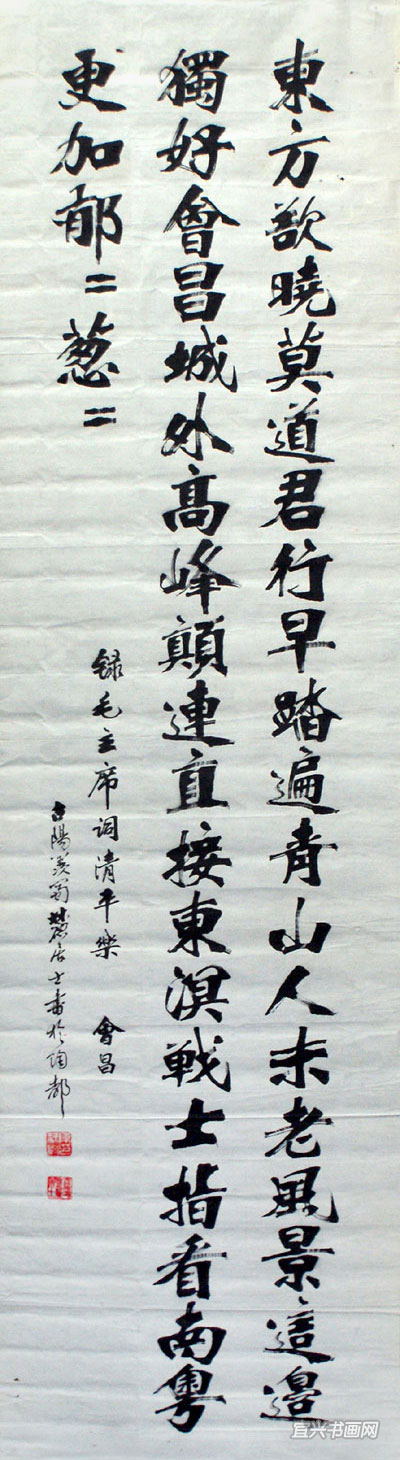 東方欲曉莫道君行早踏遍青山人未老風景這邊
獨好會昌城外高峰顛連直接東溟戦士指看南粵
更加郁〻葱〻
録毛主席詞清平樂 會昌
古陽羨蜀麓居士書於陶都
宜兴书画网